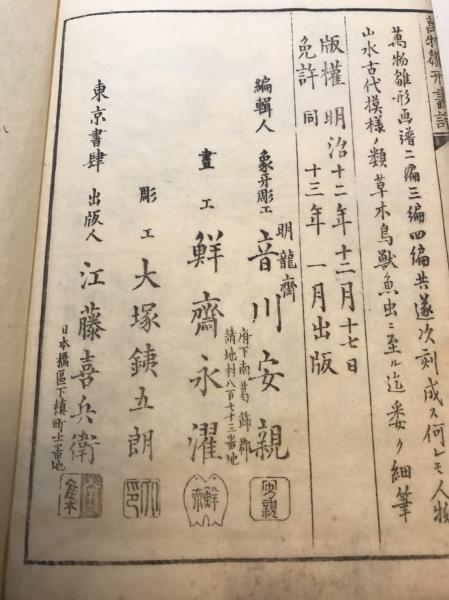 萬物雛形畫譜
萬物雛形画譜二編三編四編共遂次刻成ス何レモ人物
山水古代摸様ノ類草木鳥獸魚虫ニ至ル迄委ク細筆
版權 明治十二年十二月十七日
免許 同 十三年 一月出版
編輯人 象牙彫工 明龍齋 音川安親
府下南葛飾郡
請地村八百七十三番地
畫工 鮮齋永濯
彫工 大塚銕五朗
東京書肆 出版人 江藤喜兵衛
日本橋區下槇町十番地
安親
鮮齋
大
印